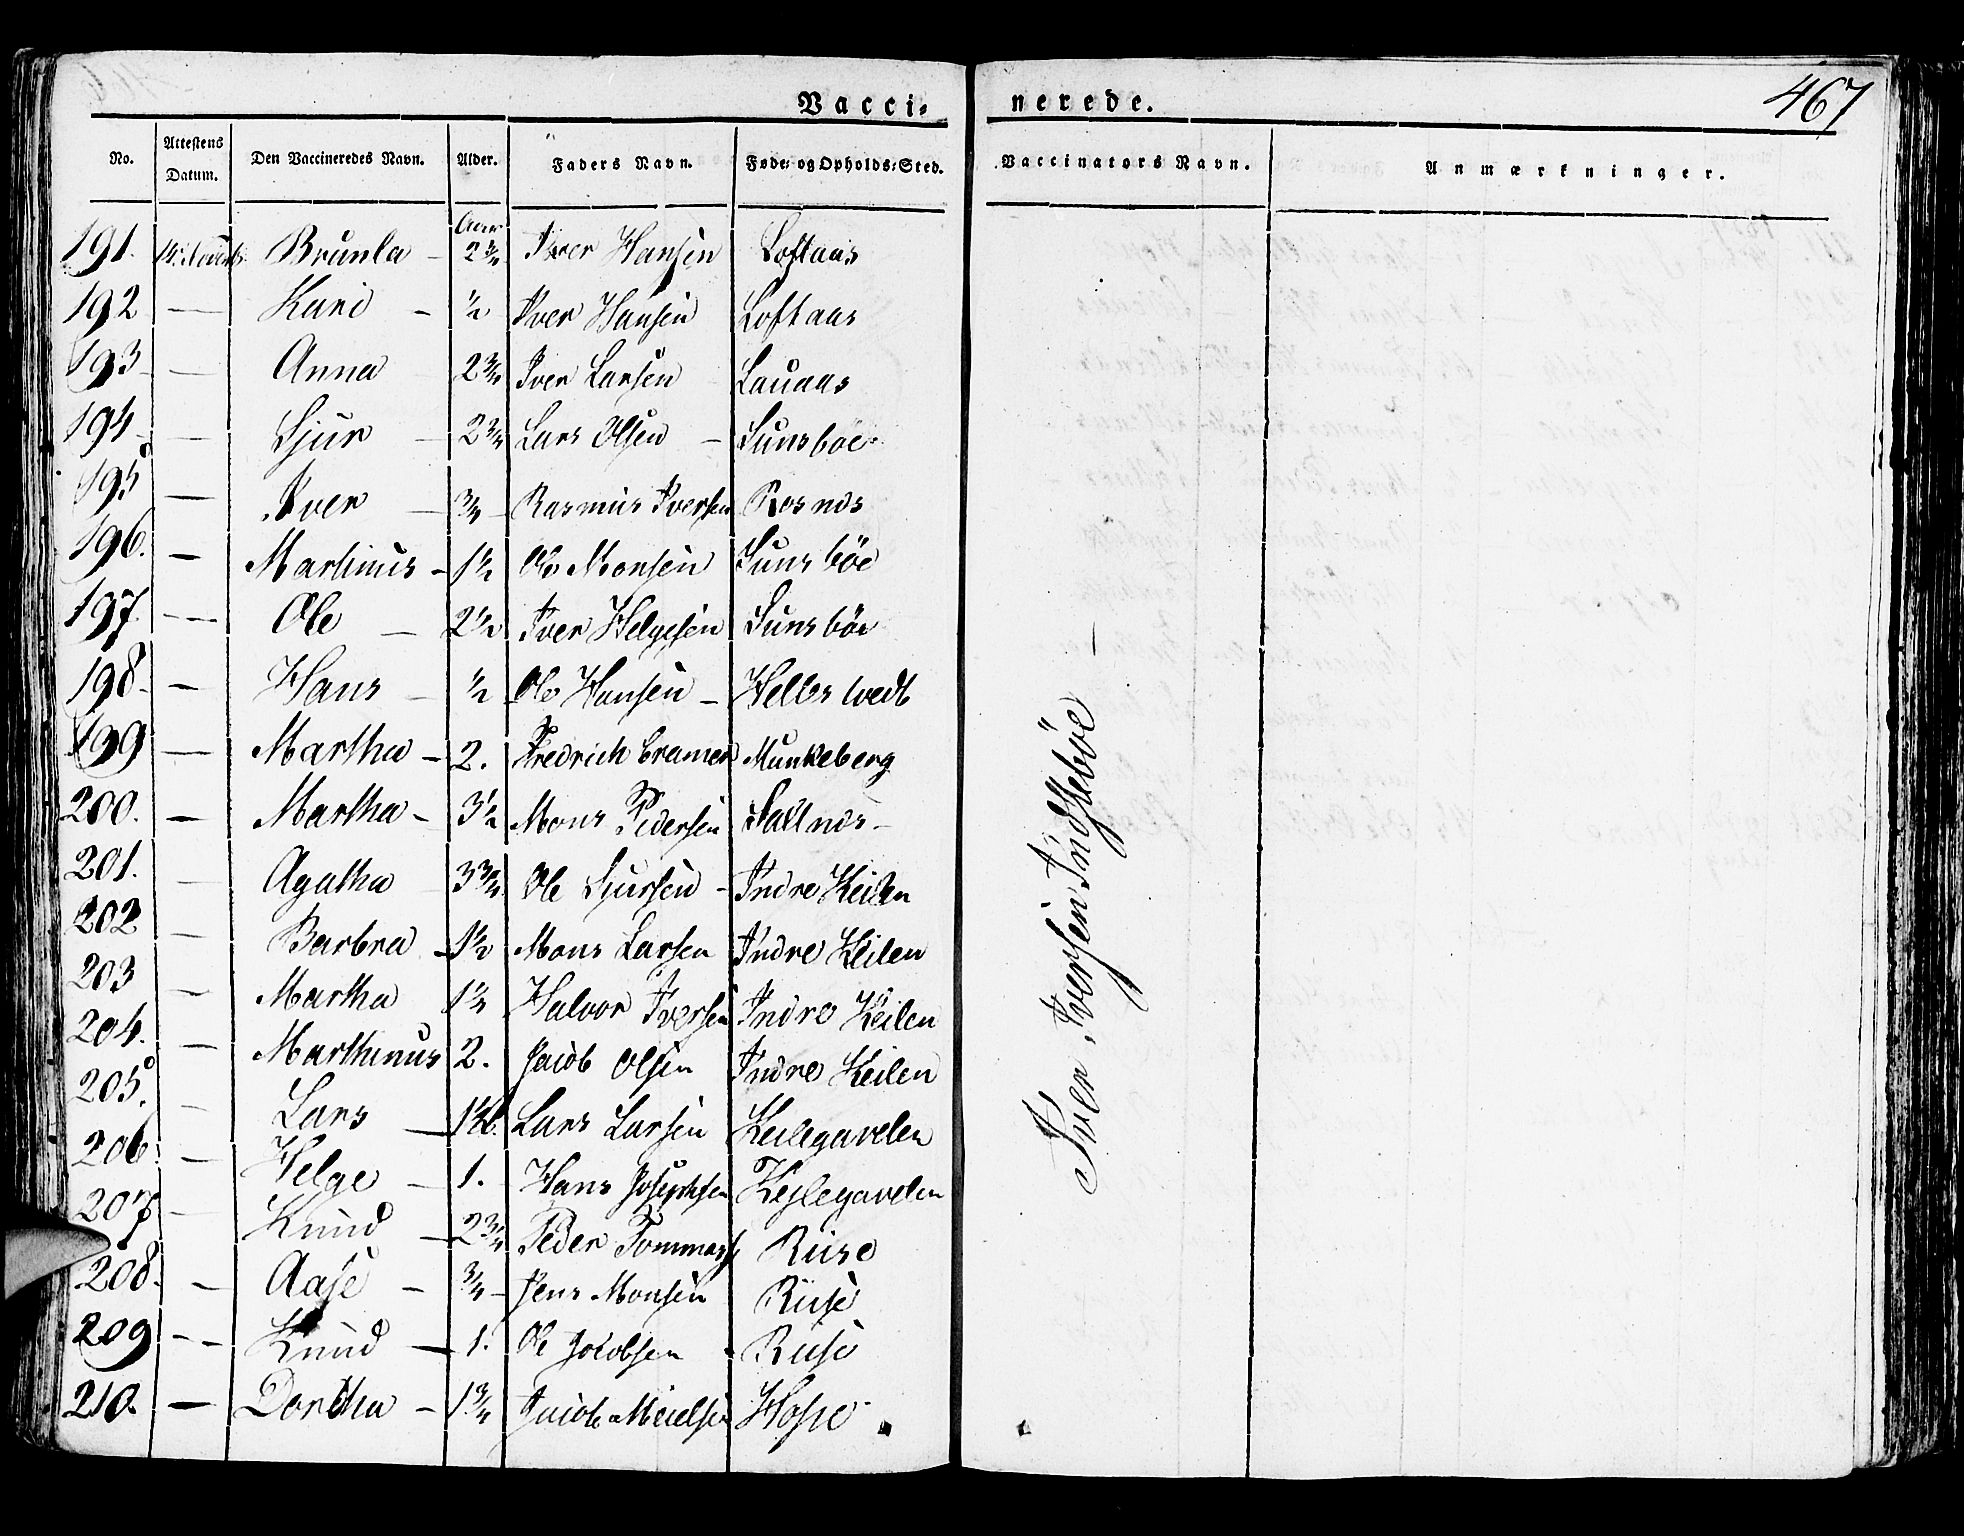 467
Vaccinerede.
No. Attestens Datum. Den Vaccineredes Navn. Alder. Faders Navn. Føde- og Opholds-Sted. Vaccinators Navn. Anmærkninger.
Aar
191. Brunla - 2 3/4 Iver Hansen Loftaas
192 — Kari - 1/2 Iver Hansen Loftaas
193 — Anna 2 3/4 Iver Larsen Lauaas
194 — Sjur - 2 3/4 Lars Olsen - Sunsböe
195 — Iver - 3/4 - Rasmus Iversen Rosnes
196. — Martinus - 1 1/2 Ole Monsen Sunsböe
197. — Ole - 2 1/2 Iver Helgesen Sunsböe
198 - — Hans - 1/2 Ole Hansen - Hellestvedt
199 — Martha - 2. Fredrich Cramer Munkeberg
200. — Martha - 3 1/2 Mons Pedersen Saltnes -
201. — Agatha 3 3/4 Ole Sjursen - Indre Keilen
202 — Barbra - 1 1/2 Mons Larsen Indre Keilen
203 — Martha 1 1/2 Halvor Iversen Indre Keilen
204. — Marthinus 2. Jacob Olsen Indre Keilen
205. — Lars — Lars Larsen Keilegavelen
206. — Helge - 1. Hans Josephsen Kejlegavelen
207 — Knud - 2 3/4 Peder Tommas Riise
208. — Aase - 3/4 - Jens Monsen Riise
209 — Knud — 1. Ole Jacobsen Riise
210. — Dorthea - 1 3/4 Jacob Nielsen Hope
Iver Iversen Indsteböe —